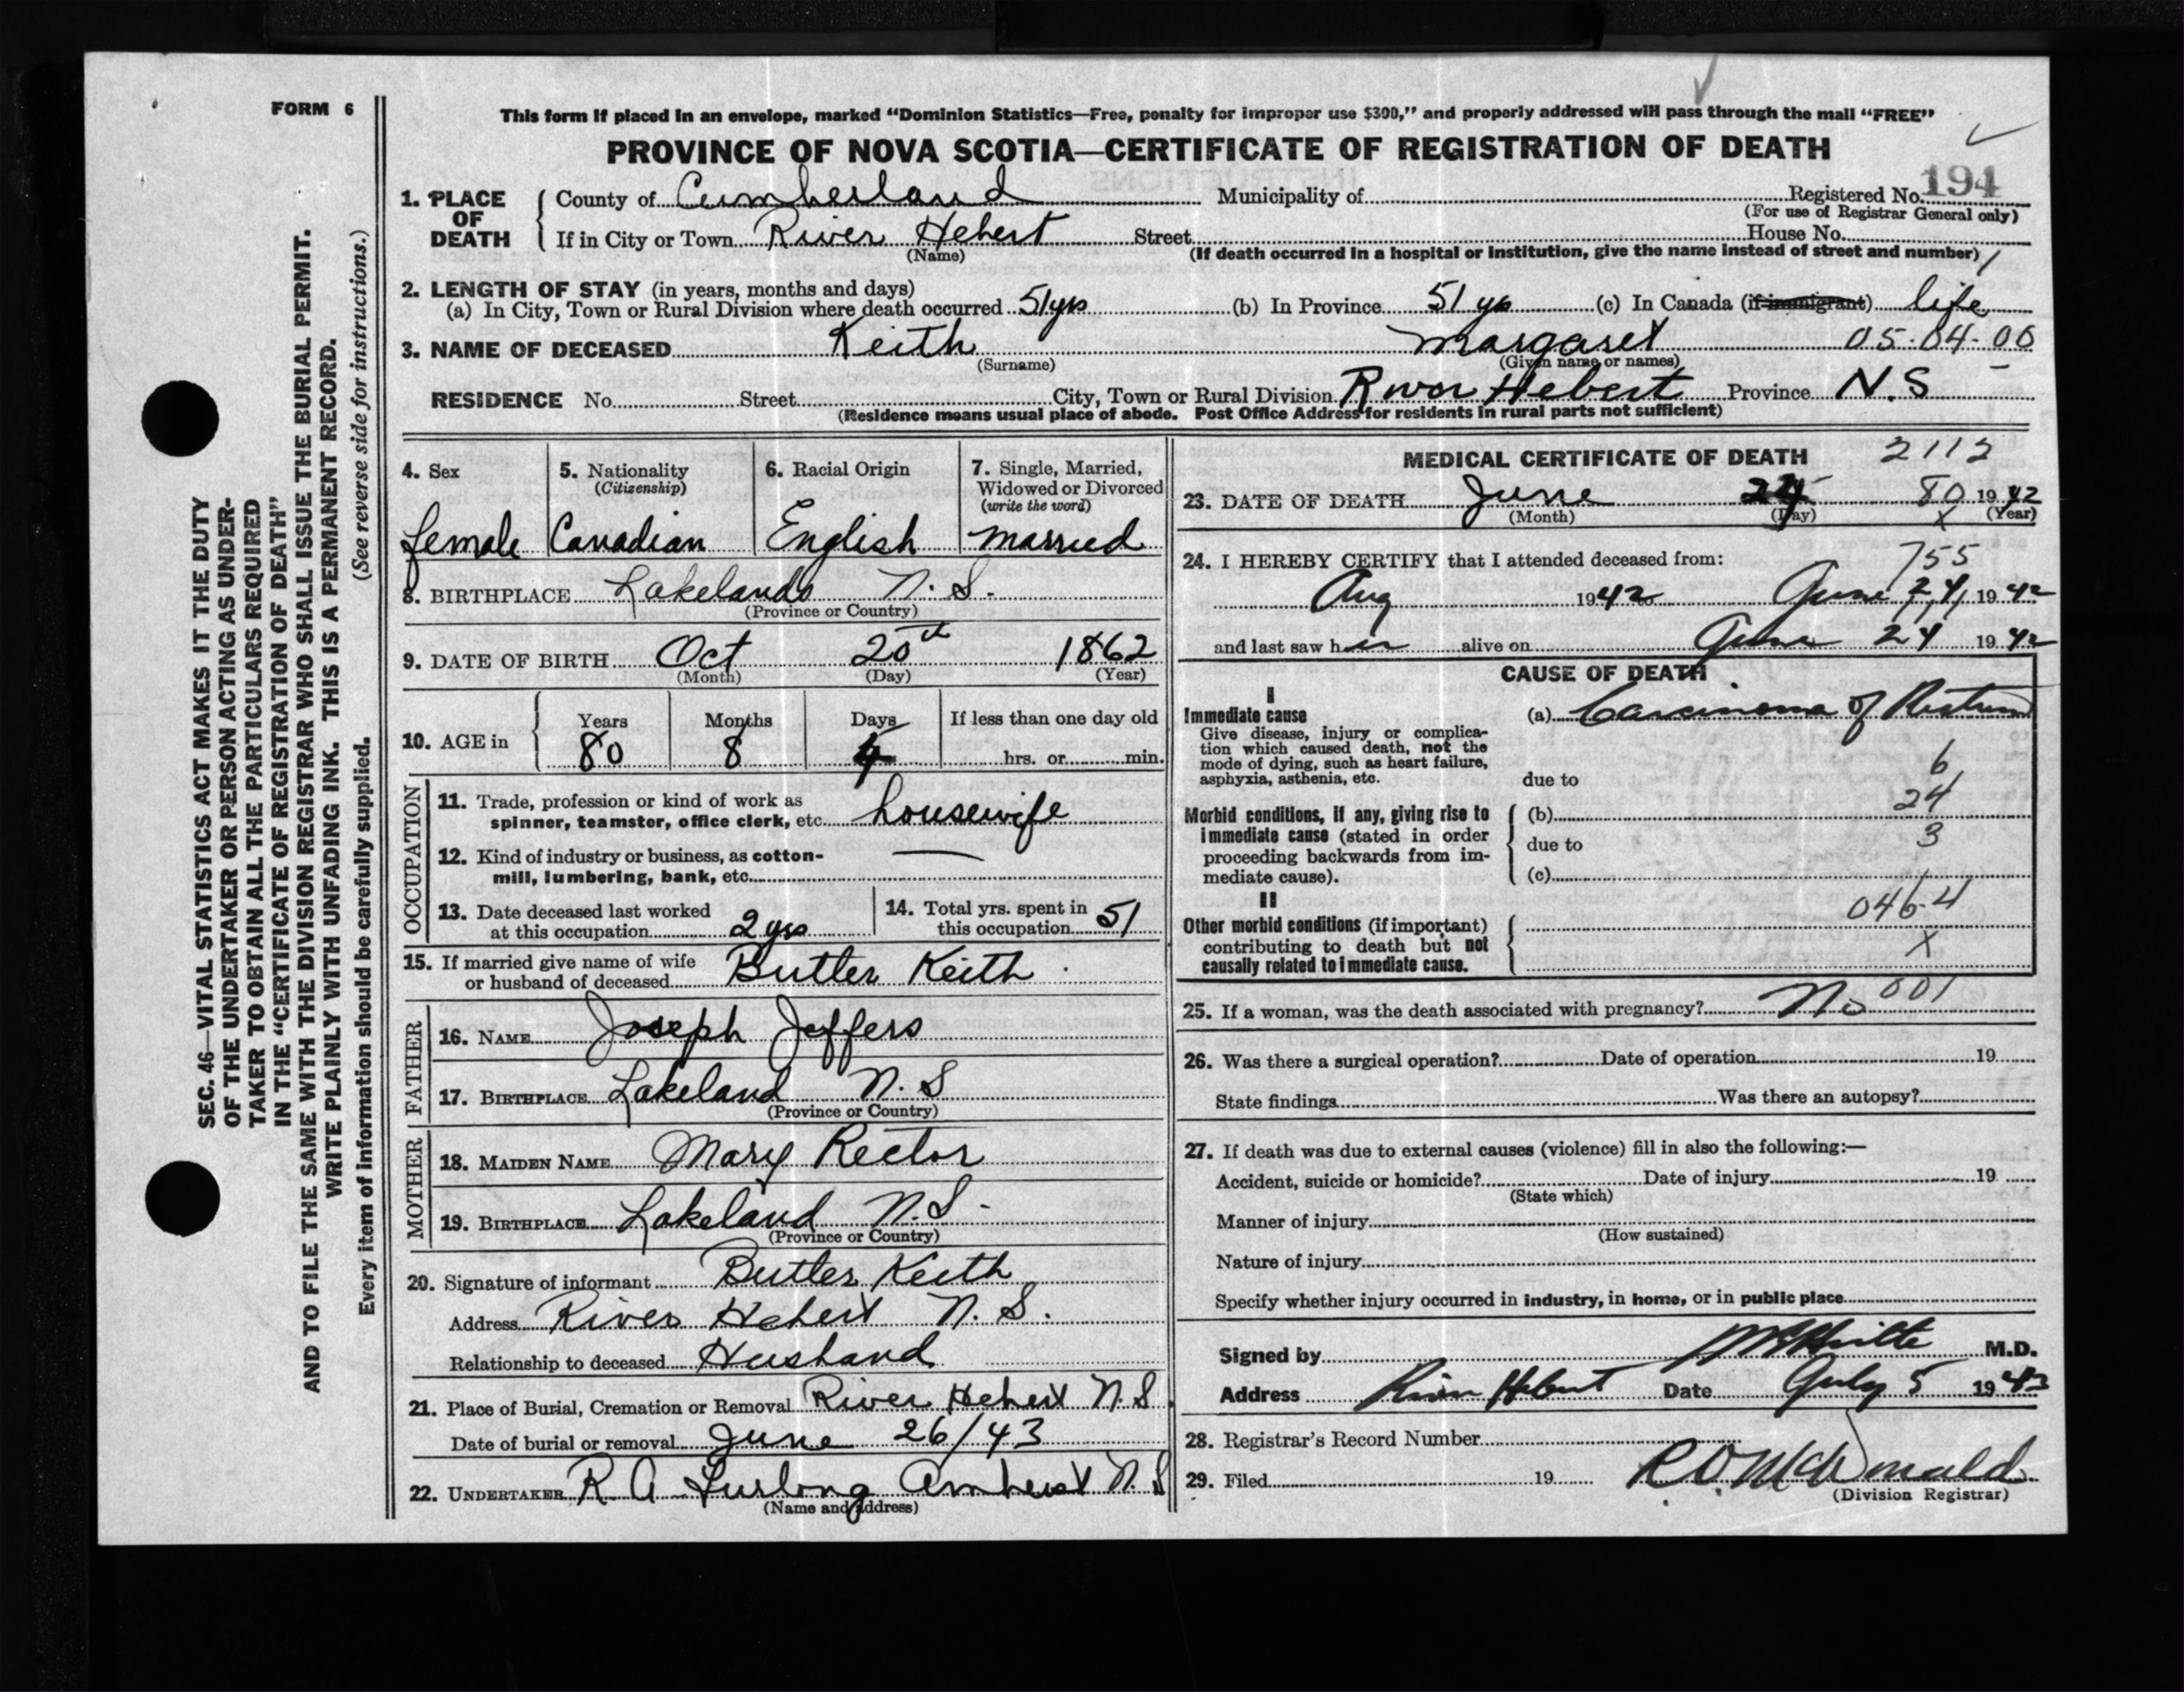 FORM 6
This form if placed in an envelope, marked "Dominion Statistics—Free, penalty for improper use $300," and properly addressed will pass through the mail "FREE"
PROVINCE OF NOVA SCOTIA—CERTIFICATE OF REGISTRATION OF DEATH
SEC. 46—VITAL STATISTICS ACT MAKES IT THE DUTY
OF THE UNDERTAKER OR PERSON ACTING AS UNDER-
TAKER TO OBTAIN ALL THE PARTICULARS REQUIRED
IN THE "CERTIFICATE OF REGISTRATION OF DEATH"
AND TO FILE THE SAME WITH THE DIVISION REGISTRAR WHO SHALL ISSUE THE BURIAL PERMIT.
WRITE PLAINLY WITH UNFADING INK. THIS IS A PERMANENT RECORD.
Every item of information should be carefully supplied. (See reverse side for instructions.)
1. PLACE OF DEATH
County of Cumberland Municipality of Registered No. 194
(For use of Registrar General only)
If in City or Town River Hebert Street House No.
(Name) (If death occurred in a hospital or institution, give the name instead of street and number) 1
2. LENGTH OF STAY (in years, months and days)
(a) In City, Town or Rural Division where death occurred 51 yrs (b) In Province 51 yrs (c) In Canada (if immigrant) life
3. NAME OF DECEASED Keith Margaret 05-04-00
(Surname) (Given name or names)
RESIDENCE No. Street City, Town or Rural Division River Hebert Province N.S
(Residence means usual place of abode. Post Office Address for residents in rural parts not sufficient)
4. Sex female
5. Nationality (Citizenship) Canadian
6. Racial Origin English
7. Single, Married, Widowed or Divorced (write the word) married
8. BIRTHPLACE Lakelands N.S.
(Province or Country)
9. DATE OF BIRTH Oct 20th 1862
(Month) (Day) (Year)
10. AGE in Years Months Days If less than one day old
80 8 4 hrs. or min.
OCCUPATION
11. Trade, profession or kind of work as
spinner, teamster, office clerk, etc. housewife
12. Kind of industry or business, as cotton-
mill, lumbering, bank, etc. —
13. Date deceased last worked
at this occupation 2 yrs
14. Total yrs. spent in
this occupation 51
15. If married give name of wife
or husband of deceased Butler Keith
FATHER
16. NAME Joseph Jeffers
17. BIRTHPLACE Lakeland N.S
(Province or Country)
MOTHER
18. MAIDEN NAME Mary Rector
19. BIRTHPLACE Lakeland N.S.
(Province or Country)
20. Signature of informant Butler Keith
Address River Hebert N.S.
Relationship to deceased Husband
21. Place of Burial, Cremation or Removal River Hebert N.S
Date of burial or removal June 26/43
22. UNDERTAKER R A Furlong Amherst N.S
(Name and address)
MEDICAL CERTIFICATE OF DEATH 2112
23. DATE OF DEATH June 24 80 1942
(Month) (Day) X (Year)
24. I HEREBY CERTIFY that I attended deceased from: 755
Aug 1942 June 24, 1942
and last saw her alive on June 24 1942
CAUSE OF DEATH
I
Immediate cause
Give disease, injury or complica-
tion which caused death, not the
mode of dying, such as heart failure,
asphyxia, asthenia, etc.
(a) Carcinoma of Rectum
6
due to
24
Morbid conditions, if any, giving rise to
immediate cause (stated in order
proceeding backwards from im-
mediate cause).
(b)
due to 3
(c)
II
046-4
Other morbid conditions (if important)
contributing to death but not
causally related to immediate cause.
X
25. If a woman, was the death associated with pregnancy? No 001
26. Was there a surgical operation? Date of operation 19
State findings Was there an autopsy?
27. If death was due to external causes (violence) fill in also the following:—
Accident, suicide or homicide? Date of injury 19
(State which)
Manner of injury
(How sustained)
Nature of injury
Specify whether injury occurred in industry, in home, or in public place
Signed by M.D.
Address River Hebert Date July 5 1943
28. Registrar's Record Number
29. Filed 19 R.O. McDonald
(Division Registrar)